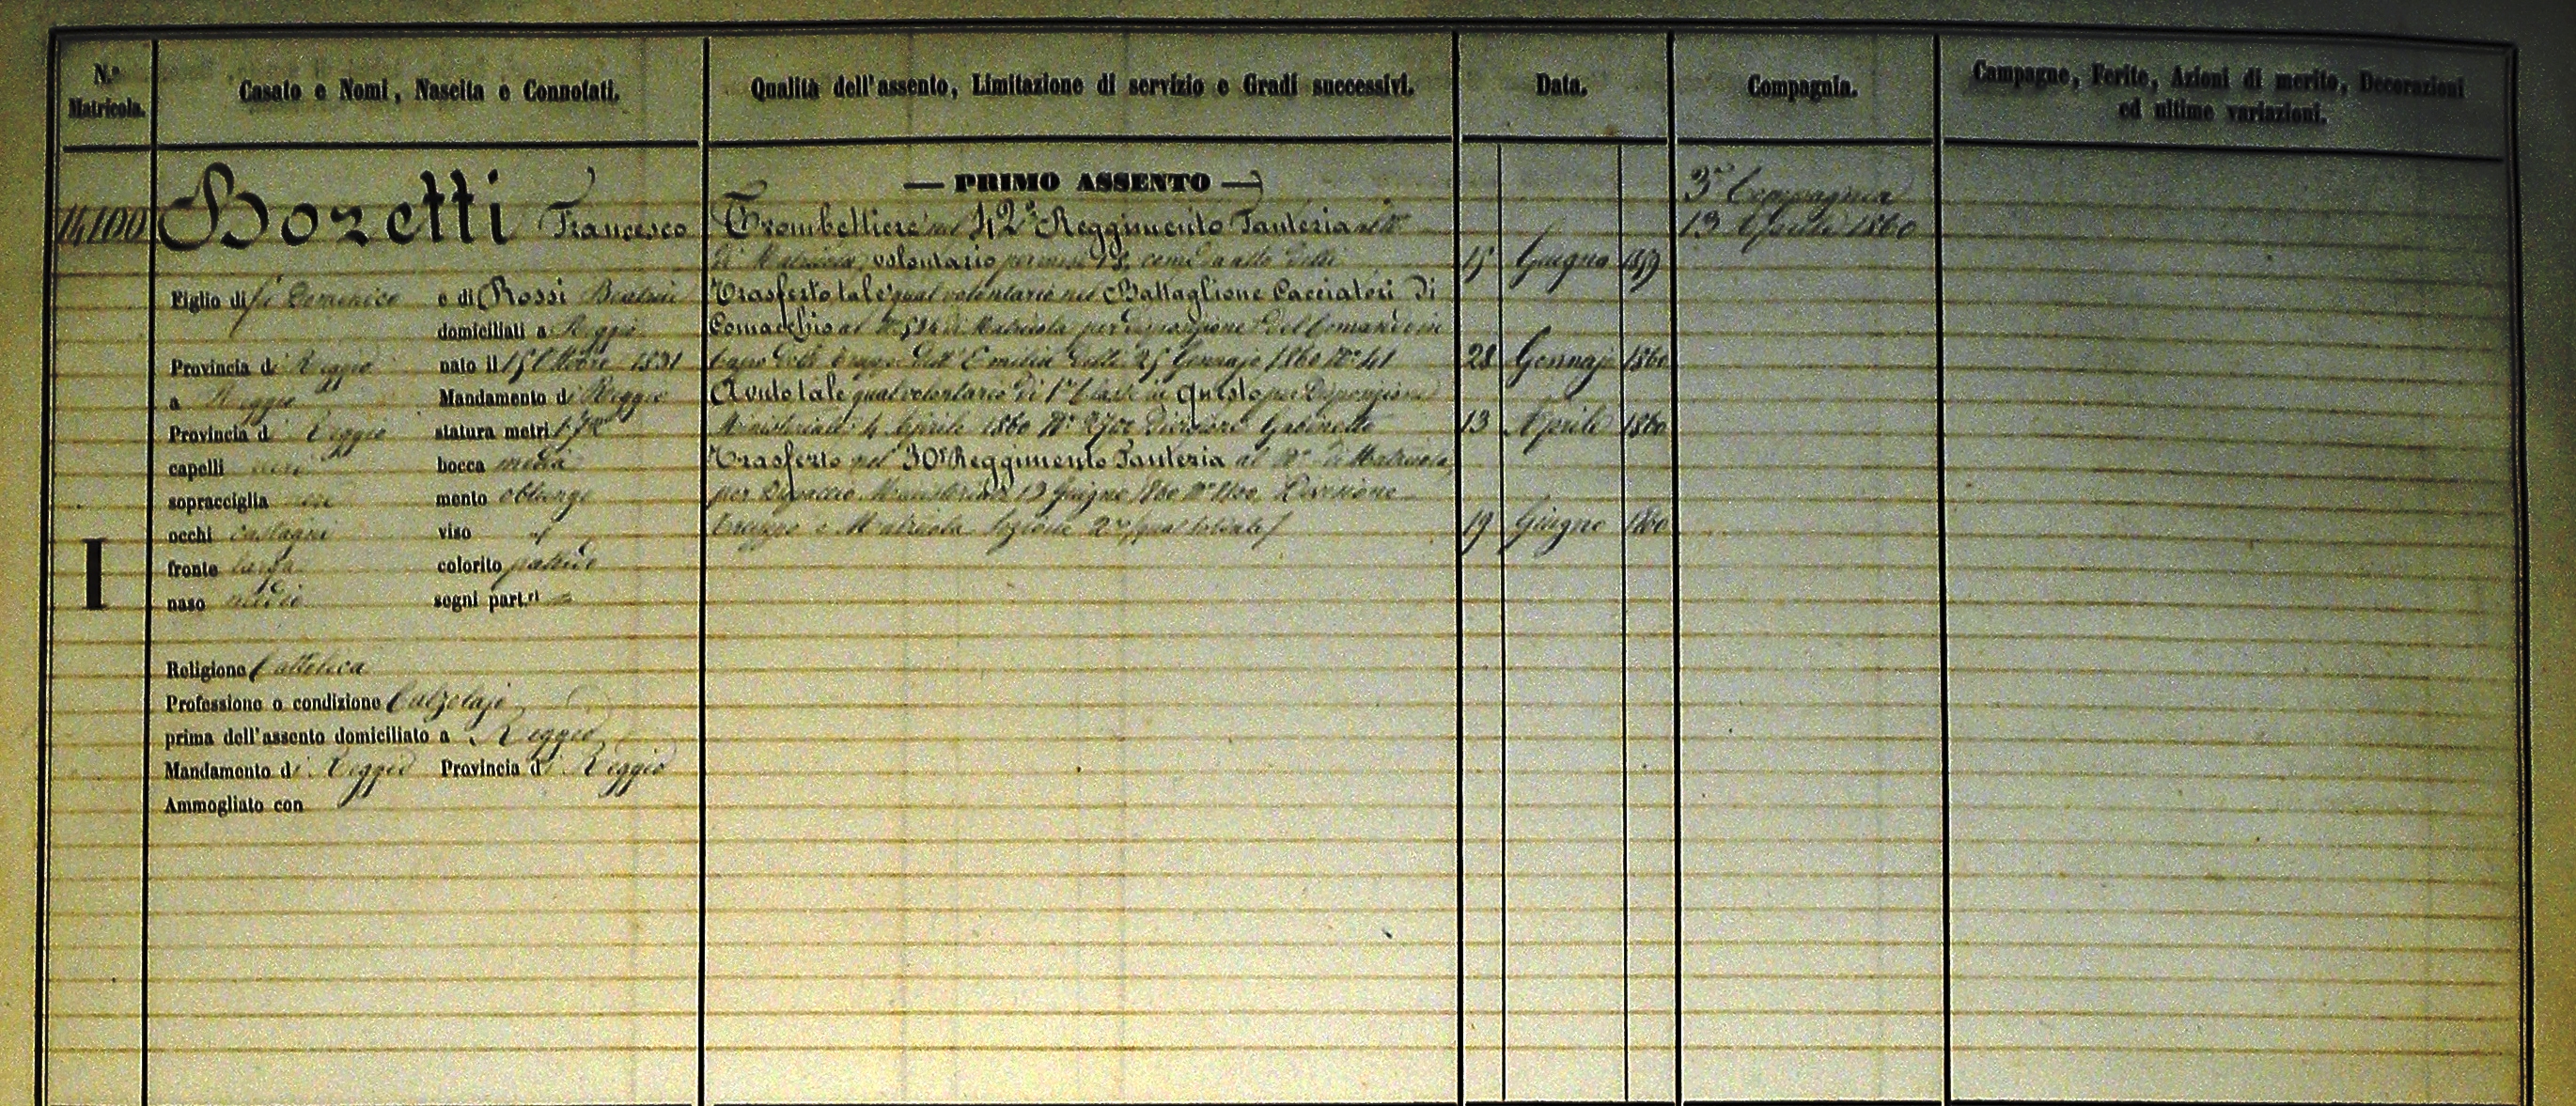 N.º Matricola.
Casato e Nomi, Nascita e Connotati.
Qualità dell'assento, Limitazione di servizio e Gradi successivi.
Data.
Compagnia.
Campagne, Ferite, Azioni di merito, Decorazioni
ed ultime variazioni.
14100
Bozetti Francesco
Figlio di fù Domenico e di Rossi Beatrice
domiciliati a Reggio
Provincia di Reggio nato il 15 Ottobre 1831
a Reggio Mandamento di Reggio
Provincia di Reggio statura metri
capelli neri bocca media
sopracciglia neri mento oblungo
occhi castagni viso
I
fronte larga colorito pallido
naso medio segni part.ri
Religione Cattolica
Professione o condizione Calzolajo
prima dell'assento domiciliato a Reggio
Mandamento di Reggio Provincia di Reggio
Ammogliato con
PRIMO ASSENTO
Trombettiere nel 42º Reggimento Fanteria al Nº
di Matricola, volontario per mesi 18, come da atto delli 15 Giugno 1859
Trasferto tale qual volontario nel Battaglione Cacciatori Di
Comacchio al Nº di Matricola per disposizione del Comando in
Capo delle truppe dell'Emilia delli 25 Gennajo 1860 Nº 41 28 Gennajo 1860
Avuto tale qual volontario di 1ª Classe in questo per Disposizione
Ministeriale 4 Aprile 1860 Nº Divisione Gabinetto 13 Aprile 1860
Trasferto nel 30º Reggimento Fanteria al Nº di Matricola
per Dispaccio Ministeriale 13 Giugno 1860 Nº Divisione
Truppe e Matricola Sezione 2ª (qual soldato) 19 Giugno 1860
3ª Compagnia
13 Aprile 1860